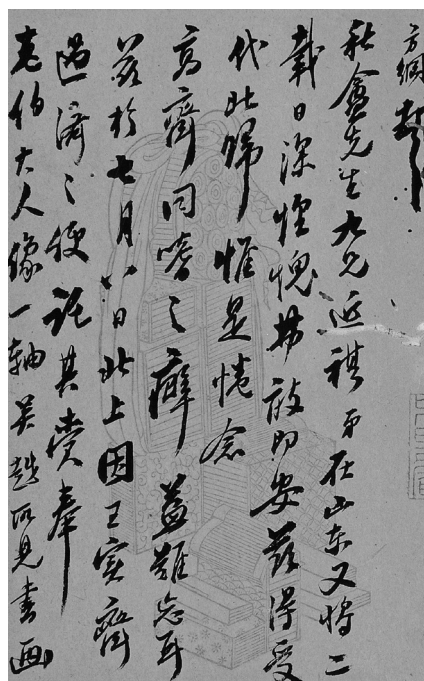 方綱
秋盦先生九兄近祺弟在山东又将二
載日深惶愧敢即安兹得受
代北歸惟是惓念
高齋同嗜之癖益難忘耳
兹於七月八日北上因王實齋
過濟之便託其賫奉
老伯大人像一軸吴越所見書画